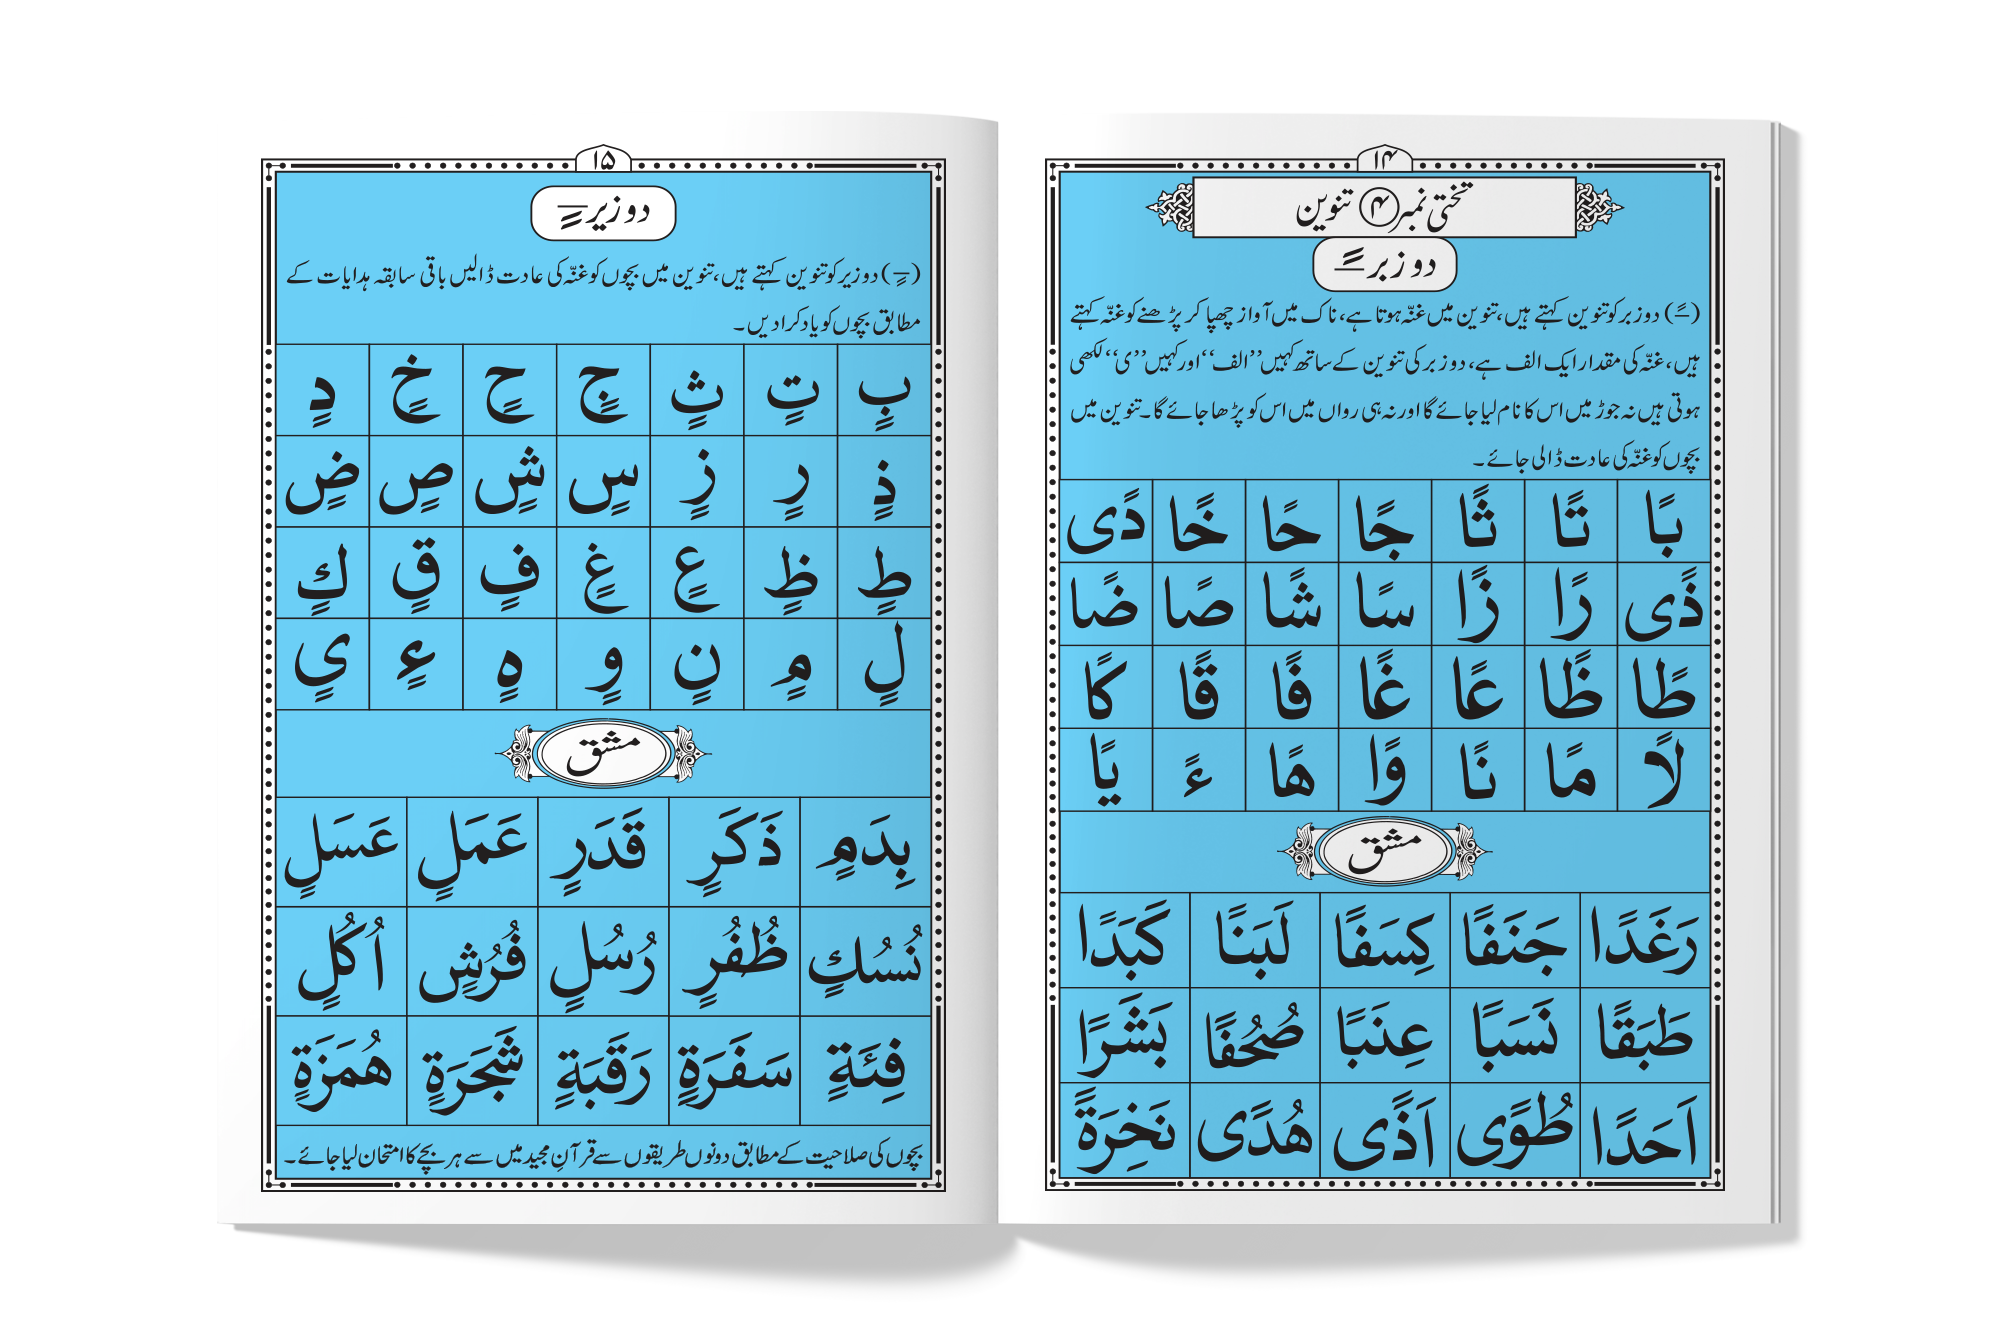 ۱۴
تختی نمبر ۴ تنوین
دو زبر ـً
(ـً) دو زبر کو تنوین کہتے ہیں، تنوین میں غنّہ ہوتا ہے، ناک میں آواز چھپا کر پڑھنے کو غنّہ کہتے
ہیں، غنّہ کی مقدار ایک الف ہے، دو زبر کی تنوین کے ساتھ کہیں ’’الف‘‘ اور کہیں ’’ی‘‘ لکھی
ہوتی ہیں نہ جوڑ میں اس کا نام لیا جائے گا اور نہ ہی رواں میں اس کو پڑھا جائے گا۔ تنوین میں
بچوں کو غنّہ کی عادت ڈالی جائے۔
بًا تًا ثًا جًا حًا خًا دًی
ذًی رًا زًا سًا شًا صًا ضًا
طًا ظًا عًا غًا فًا قًا كًا
لًا مًا نًا وًا هًا ءً يًا
مشق
رَغَدًا جَنَفًا كِسَفًا لَبَنًا كَبَدًا
طَبَقًا نَسَبًا عِنَبًا صُحُفًا بَشَرًا
اَحَدًا طُوًی اَذًی هُدًی نَخِرَةً
۱۵
دو زیر ـٍ
(ـٍ) دو زیر کو تنوین کہتے ہیں، تنوین میں بچوں کو غنّہ کی عادت ڈالیں باقی سابقہ ہدایات کے
مطابق بچوں کو یاد کرا دیں۔
بٍ تٍ ثٍ جٍ حٍ خٍ دٍ
ذٍ رٍ زٍ سٍ شٍ صٍ ضٍ
طٍ ظٍ عٍ غٍ فٍ قٍ كٍ
لٍ مٍ نٍ وٍ هٍ ءٍ يٍ
مشق
بِدَمٍ ذَكَرٍ قَدَرٍ عَمَلٍ عَسَلٍ
نُسُكٍ ظُفُرٍ رُسُلٍ فُرُشٍ اُكُلٍ
فِئَةٍ سَفَرَةٍ رَقَبَةٍ شَجَرَةٍ هُمَزَةٍ
بچوں کی صلاحیت کے مطابق دونوں طریقوں سے قرآنِ مجید میں سے ہر بچے کا امتحان لیا جائے۔